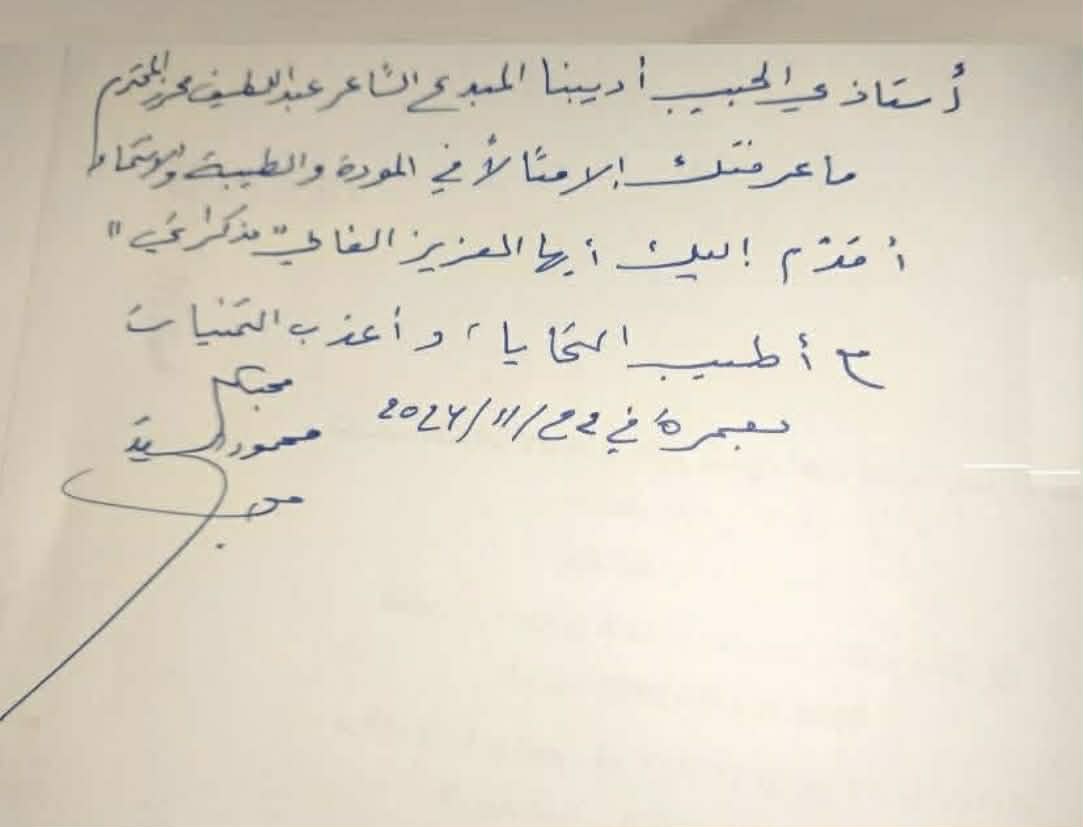 أستاذي الحبيب أديبنا المبدع الشاعر عبد اللطيف محرز المحترم
ما عرفتك إلا مثالاً في المودة والطيبة والانتماء
أقدّم إليك أيها العزيز الغالي "مذكراتي"
مع أطيب التحايا، وأعذب التمنيات
محبكم
بعمرة في 22/11/2024
محمود السيد